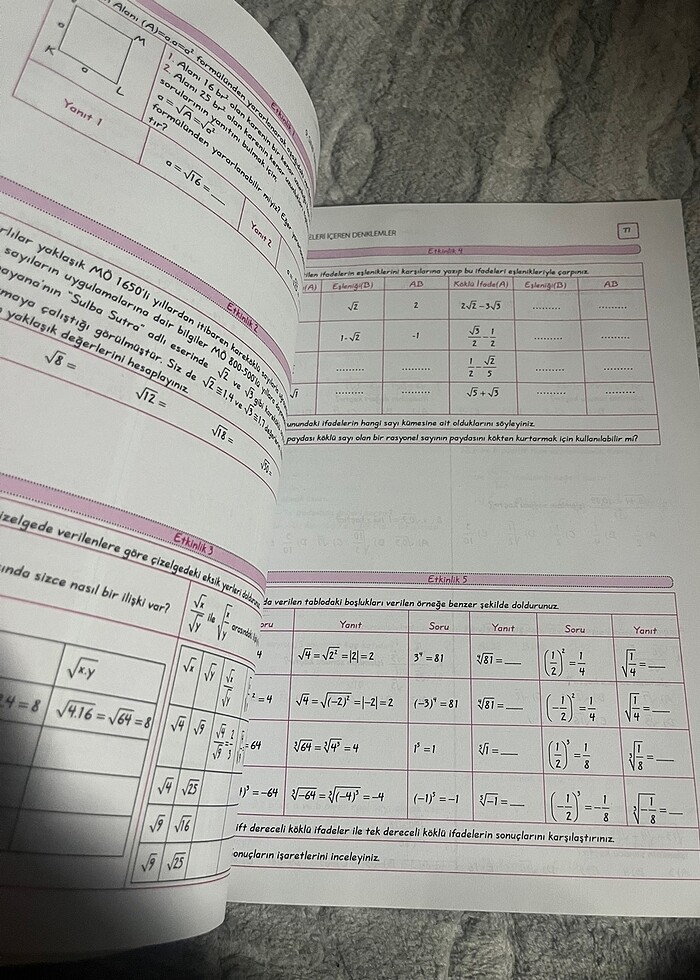 Alanı (A)=a.a=a² formülünden yararlanarak
Etkinlik 1
a
M
K
a
L
1. Alanı 16 br² olan karenin bir kenar
2. Alanı 25 br² olan karenin kenar
sorularının yanıtını bulmak için
a = √A = √a²
formülünden yararlanabilir miyiz? Eğer
tır?
Yanıt 1
a = √16 = __
Yanıt 2
Etkinlik 2
yaklaşık MÖ 1650'li yıllardan itibaren kareköklü
sayıların uygulamalarına dair bilgiler MÖ 800-500'lü
"Sulba Sutra" adlı eserinde √2 ve √3 gibi
çalıştığı görülmüştür. Siz de √2≅1,4 ve √3≅1,7
yaklaşık değerlerini hesaplayınız
√8 =
√12 =
√18 =
Etkinlik 3
çizelgede verilenlere göre çizelgedeki eksik yerleri doldurunuz
sizce nasıl bir ilişki var?
√x/√y ile √(x/y) arasında
√x.y
4 = 8
√4.16 = √64 = 8
√x √y √x/√y
√4 √9 √4/√9 = 2/3
√4 √25
√9 √16
√9 √25
İÇEREN DENKLEMLER
77
Etkinlik 4
ifadelerin eşleniklerini karşılarına yazıp bu ifadeleri eşlenikleriyle çarpınız.
(A) Eşleniği(B) AB Köklü İfade(A) Eşleniği(B) AB
√2 2 2√2 - 3√3 ......... .........
1-√2 -1 √3/2 - 1/2
......... ......... 1/2 - √2/5 ......... .........
......... ......... √5 + √3 ......... .........
ifadelerin hangi sayı kümesine ait olduklarını söyleyiniz.
paydası köklü sayı olan bir rasyonel sayının paydasını kökten kurtarmak için kullanılabilir mi?
Etkinlik 5
verilen tablodaki boşlukları verilen örneğe benzer şekilde doldurunuz.
Yanıt Soru Yanıt Soru Yanıt
4 √4 = √2² = |2| = 2 3⁴ = 81 ⁴√81 = __ (1/2)² = 1/4 √(1/4) = __
² = 4 √4 = √(-2)² = |-2| = 2 (-3)⁴ = 81 ⁴√81 = __ (-1/2)² = 1/4 √(1/4) = __
= 64 ³√64 = ³√4³ = 4 1⁵ = 1 ⁵√1 = __ (1/2)³ = 1/8 ³√(1/8) = __
)³ = -64 ³√-64 = ³√(-4)³ = -4 (-1)⁵ = -1 ⁵√-1 = __ (-1/2)³ = -1/8 ³√(-1/8) = __
dereceli köklü ifadeler ile tek dereceli köklü ifadelerin sonuçlarını karşılaştırınız.
sonuçların işaretlerini inceleyiniz.